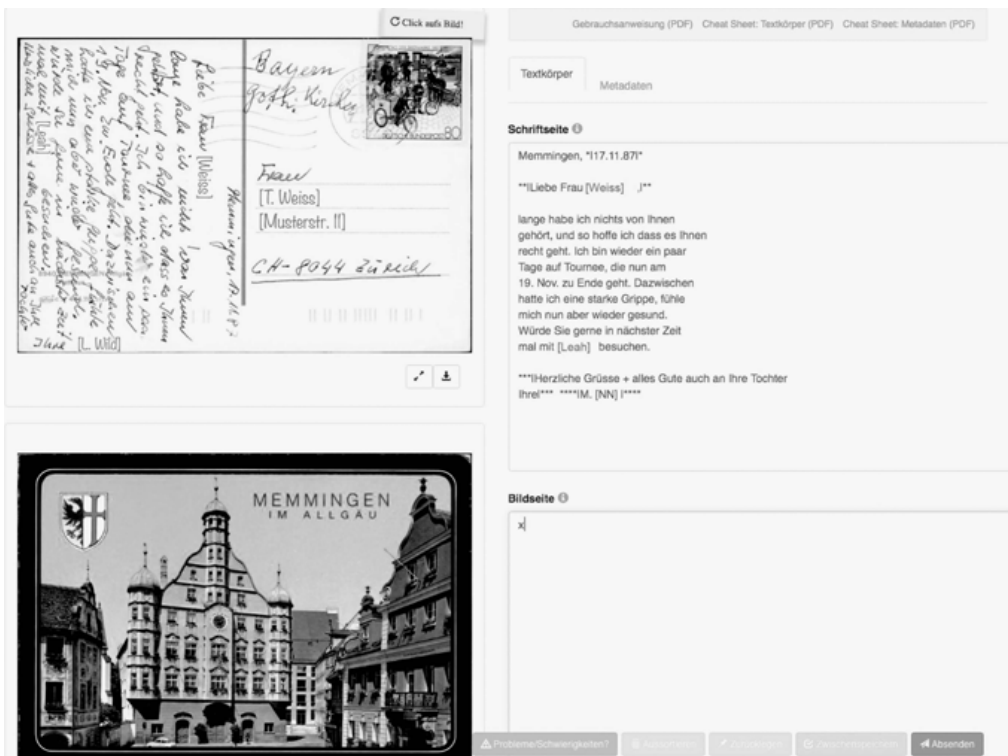 Click aufs Bild!
Bayern
Goth. Kirche
DEUTSCHE BUNDESPOST 80
Frau
[T. Weiss]
[Musterstr. 11]
CH-8044 Zürich
Memmingen, 17.11.87
Liebe Frau [Weiss]
lange habe ich nichts von Ihnen
gehört, und so hoffe ich dass es Ihnen
recht geht. Ich bin wieder ein paar
Tage auf Tournee die nun am
19. Nov. zu Ende geht. Dazwischen
hatte ich eine starke Grippe, fühle
mich nun aber wieder gesund.
Würde Sie gerne in nächster Zeit
mal mit [Leah] besuchen.
Herzliche Grüsse + alles Gute auch an Ihre
Tochter
Ihre [L. Wild]
MEMMINGEN
IM ALLGÄU
Gebrauchsanweisung (PDF) Cheat Sheet: Textkörper (PDF) Cheat Sheet: Metadaten (PDF)
Textkörper Metadaten
Schriftseite
Memmingen, *|17.11.87|*
**|Liebe Frau [Weiss] ,|**
lange habe ich nichts von Ihnen
gehört, und so hoffe ich dass es Ihnen
recht geht. Ich bin wieder ein paar
Tage auf Tournee, die nun am
19. Nov. zu Ende geht. Dazwischen
hatte ich eine starke Grippe, fühle
mich nun aber wieder gesund.
Würde Sie gerne in nächster Zeit
mal mit [Leah] besuchen.
***|Herzliche Grüsse + alles Gute auch an Ihre Tochter
Ihre|*** ****|M. [NN] |****
Bildseite
x
Probleme/Schwierigkeiten? Zwischenspeichern Absenden